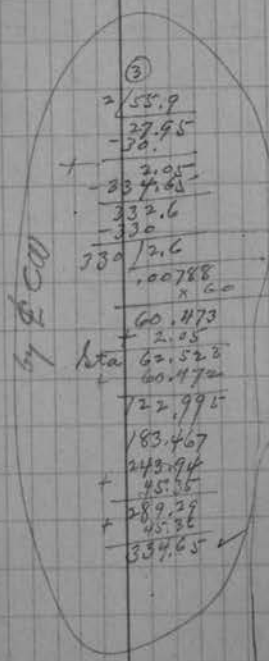 ③
2/55.9
27.95
-30.
+ 2.05
-334.65
332.6
-330
330/2.6
.00788
x 60
60.473
+ 2.05
Sta 62.523
+ 60.472
122.995
183.467
243.94
+ 45.35
289.29
+ 45.36
334.65 ✓
by